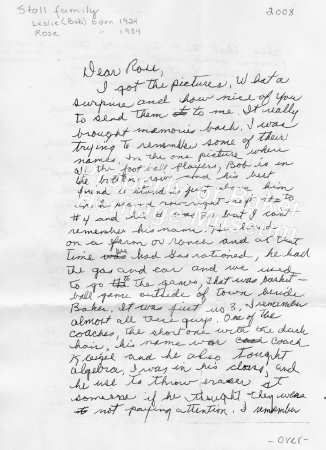 Stoll family
2008
Leslie (Bob) born 1924
Rose " 1934
Dear Rose,
I got the pictures, What a
surprise and how nice of you
to send them to me. It really
brought memories back. I was
trying to remember some of their
names. In the one picture where
all the football players, Bob is in
the bottom row and his best
friend is
him
#4 and his
but I can't
remember his name. He lived
on a farm or ranch and at that
time we had Gas rationed, he had
the gas and car and we used
to go to the games, that was basket-
ball game outside of town beside
Baker. It was first us 3, I remember
almost all these guys. One of the
coaches, the short one with the dark
hair, his name was Coach
and he also taught
algebra, I was in his class, and
he use to throw eraser at
someone if he thought they was
not paying attention. I remember
-over-